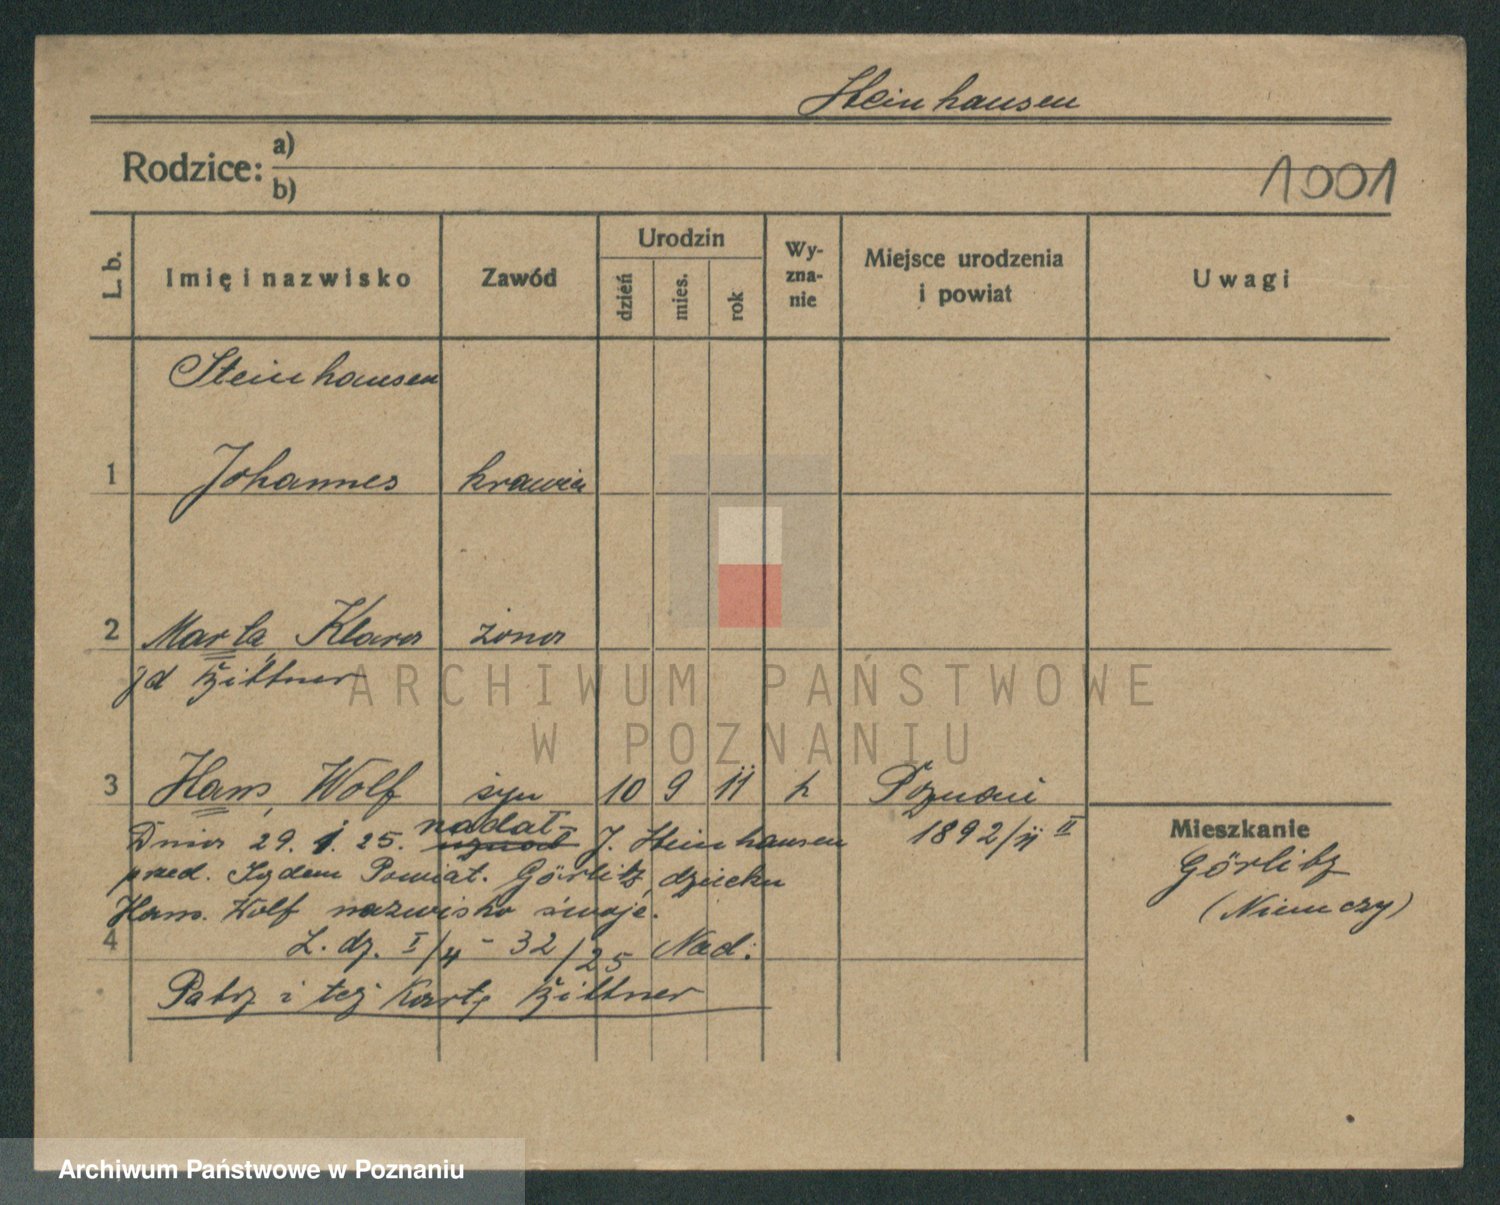 Steinhausen
Rodzice: a)
b)
1001
L. b.
Imię i nazwisko
Zawód
Urodzin
dzień
mies.
rok
Wy-
zna-
nie
Miejsce urodzenia
i powiat
Uwagi
Steinhausen
1 Johannes krawiec
2 Marta, Klara żona
żd Bittner
3 Hans, Wolf syn 10 9 11 k Poznań
1892/11 II
Dnia 29. 1. 25. nadał J. Steinhausen
przed Sądem Powiat. Görlitz, dziecku
Hans. Wolf nazwisko swoje.
4 L. dz. I/4 - 32/25 Nad:
Patrz i tej Kartę Bittner
Mieszkanie
Görlitz
(Niemczy)
ARCHIWUM PAŃSTWOWE
W POZNANIU
Archiwum Państwowe w Poznaniu